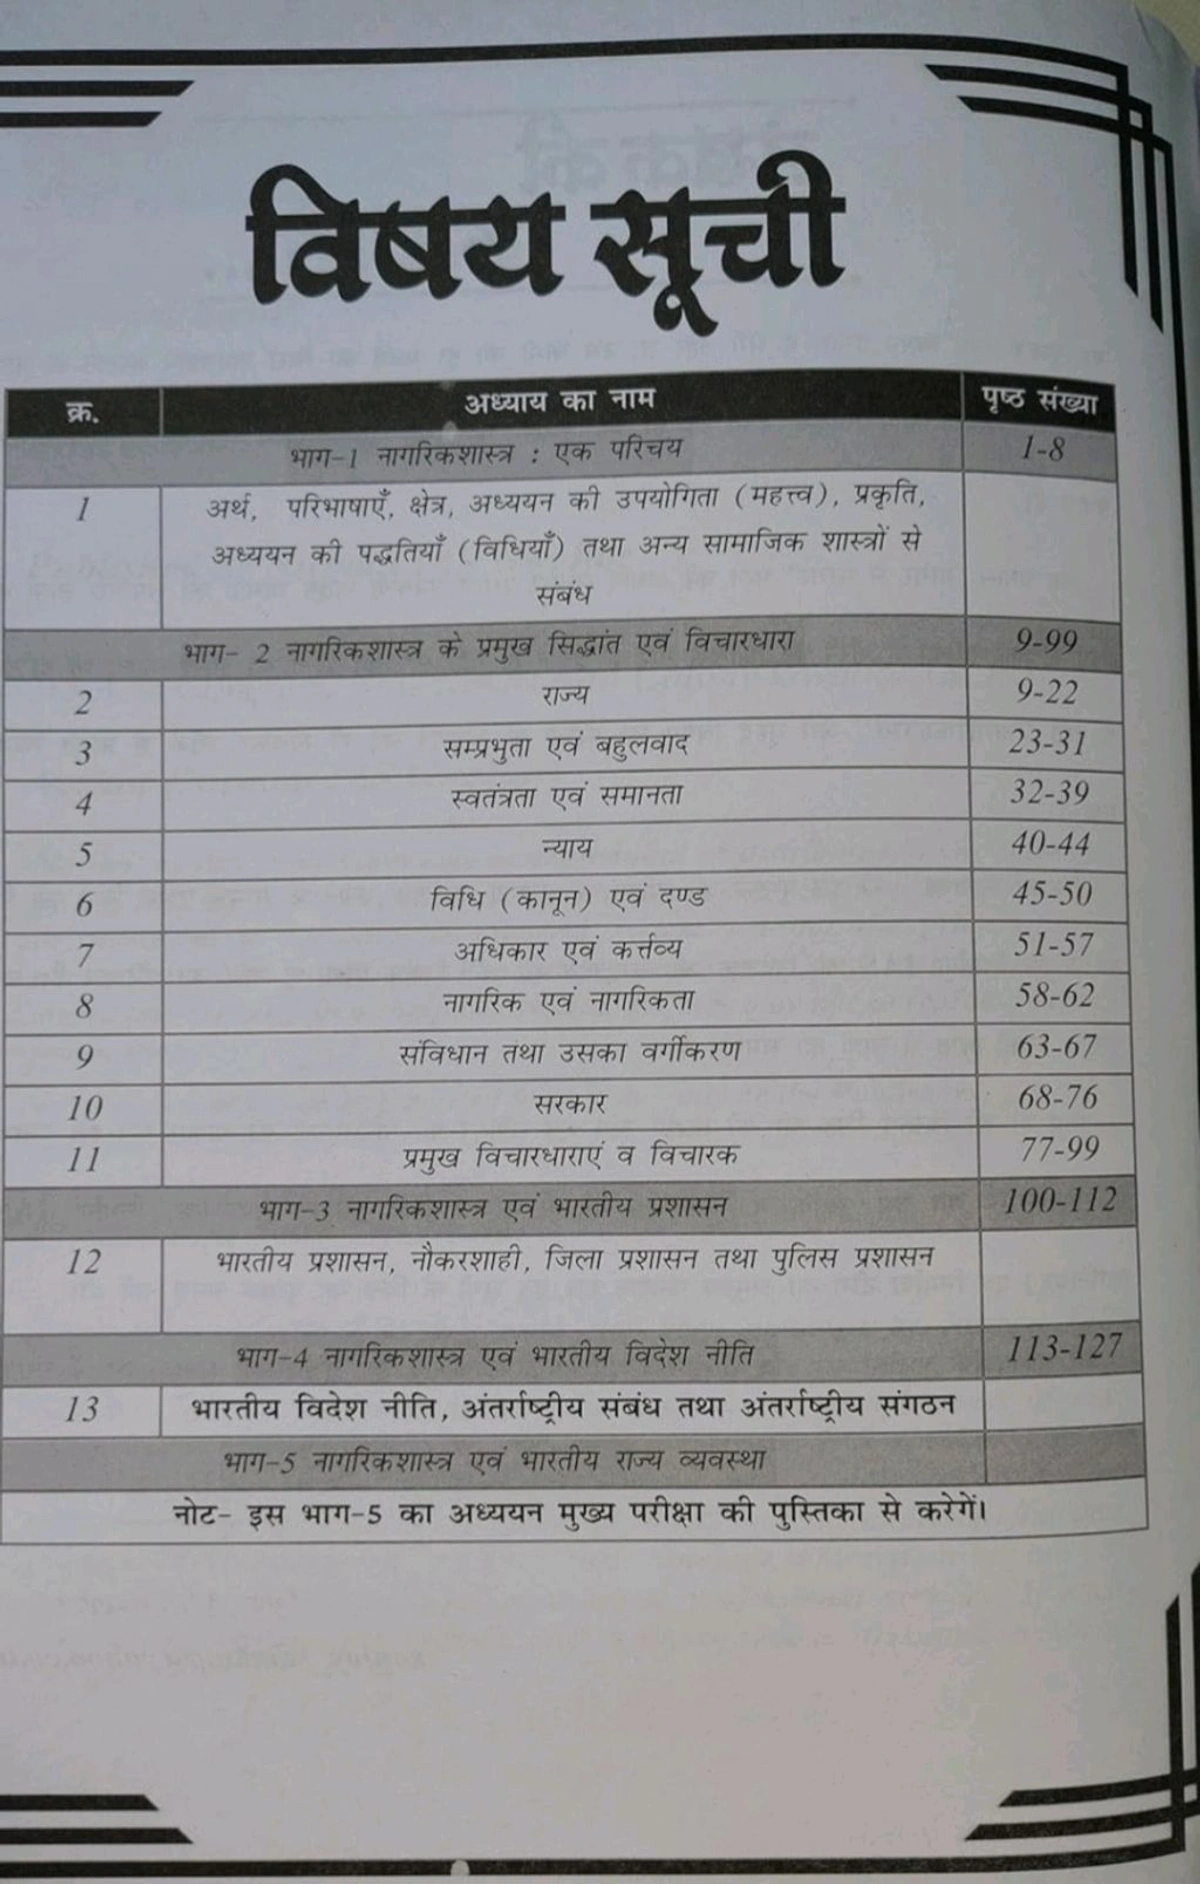 विषय सूची
क्र. अध्याय का नाम पृष्ठ संख्या
भाग-1 नागरिकशास्त्र : एक परिचय 1-8
1 अर्थ, परिभाषाएँ, क्षेत्र, अध्ययन की उपयोगिता (महत्त्व), प्रकृति,
अध्ययन की पद्धतियाँ (विधियाँ) तथा अन्य सामाजिक शास्त्रों से
संबंध
भाग- 2 नागरिकशास्त्र के प्रमुख सिद्धांत एवं विचारधारा 9-99
2 राज्य 9-22
3 सम्प्रभुता एवं बहुलवाद 23-31
4 स्वतंत्रता एवं समानता 32-39
5 न्याय 40-44
6 विधि (कानून) एवं दण्ड 45-50
7 अधिकार एवं कर्त्तव्य 51-57
8 नागरिक एवं नागरिकता 58-62
9 संविधान तथा उसका वर्गीकरण 63-67
10 सरकार 68-76
11 प्रमुख विचारधाराएं व विचारक 77-99
भाग-3 नागरिकशास्त्र एवं भारतीय प्रशासन 100-112
12 भारतीय प्रशासन, नौकरशाही, जिला प्रशासन तथा पुलिस प्रशासन
भाग-4 नागरिकशास्त्र एवं भारतीय विदेश नीति 113-127
13 भारतीय विदेश नीति, अंतर्राष्ट्रीय संबंध तथा अंतर्राष्ट्रीय संगठन
भाग-5 नागरिकशास्त्र एवं भारतीय राज्य व्यवस्था
नोट- इस भाग-5 का अध्ययन मुख्य परीक्षा की पुस्तिका से करेगें।